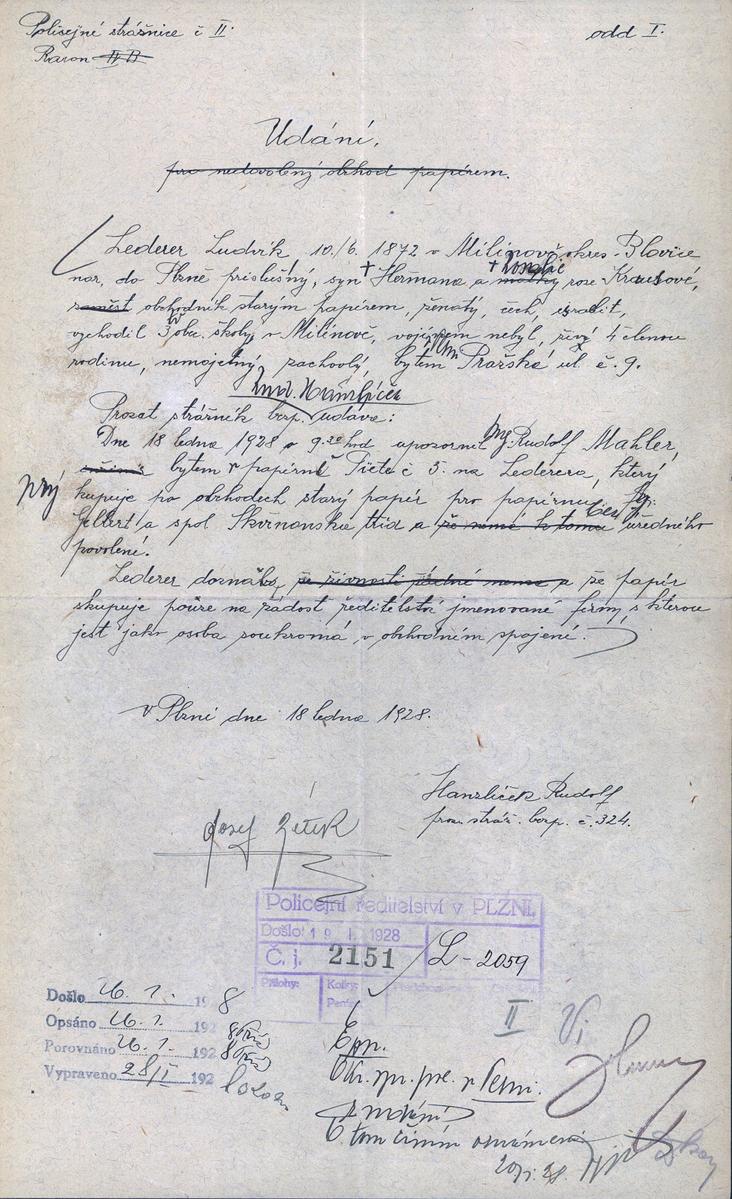 Policejné strážnice č II.
odd I.
Raron II B
Udání.
pro nedovolený obchod papírem.
Lederer Ludvík 10./6. 1872 v Milínově okres. Blovice
nar. do Plzně příslušný, syn † Heřmana a † matky roze Krausové,
obchodník starým papírem, ženatý, čech, israelit,
vychodil 3 obec. školy v Milínově, vojínem nebyl, živý 4 člennou
rodinu, nemajetný, zachovlý, bytem Pražská ul. č. 9.
Rud. Hanzlíček
Prozat strážník bezp. udává:
Dne 18 ledna 1928 o 9.20 hod upozornil Rudolf Mahler,
bytem v papírně Piete č 5. na Lederera, který
prý kupuje po obchodech starý papír pro papírnu fy:
Gellert a spol Skvrňanská tříd a že nemá k tomu bez úředného
povolení.
Lederer doznal, že živnosti žádné nemá a že papír
skupuje pouze na žádost ředitelství jmenované firmy, s kterou
jest jako osoba soukromá v obchodním spojení.
v Plzni dne 18 ledna 1928.
Hanzlíček Rudolf
proz. stráž. bezp. č. 324.
Josef
Policejní ředitelství v PLZNI.
Došlo: 19. I. 1928
Č. j. 2151
L - 2059
Přílohy:
Kolky:
Došlo 26. 1. 19 8
Opsáno 26. 1. 192 8
Porovnáno 26. 1. 192 8
Vypraveno 28/I 192
II
s udání
O tom činím oznámení